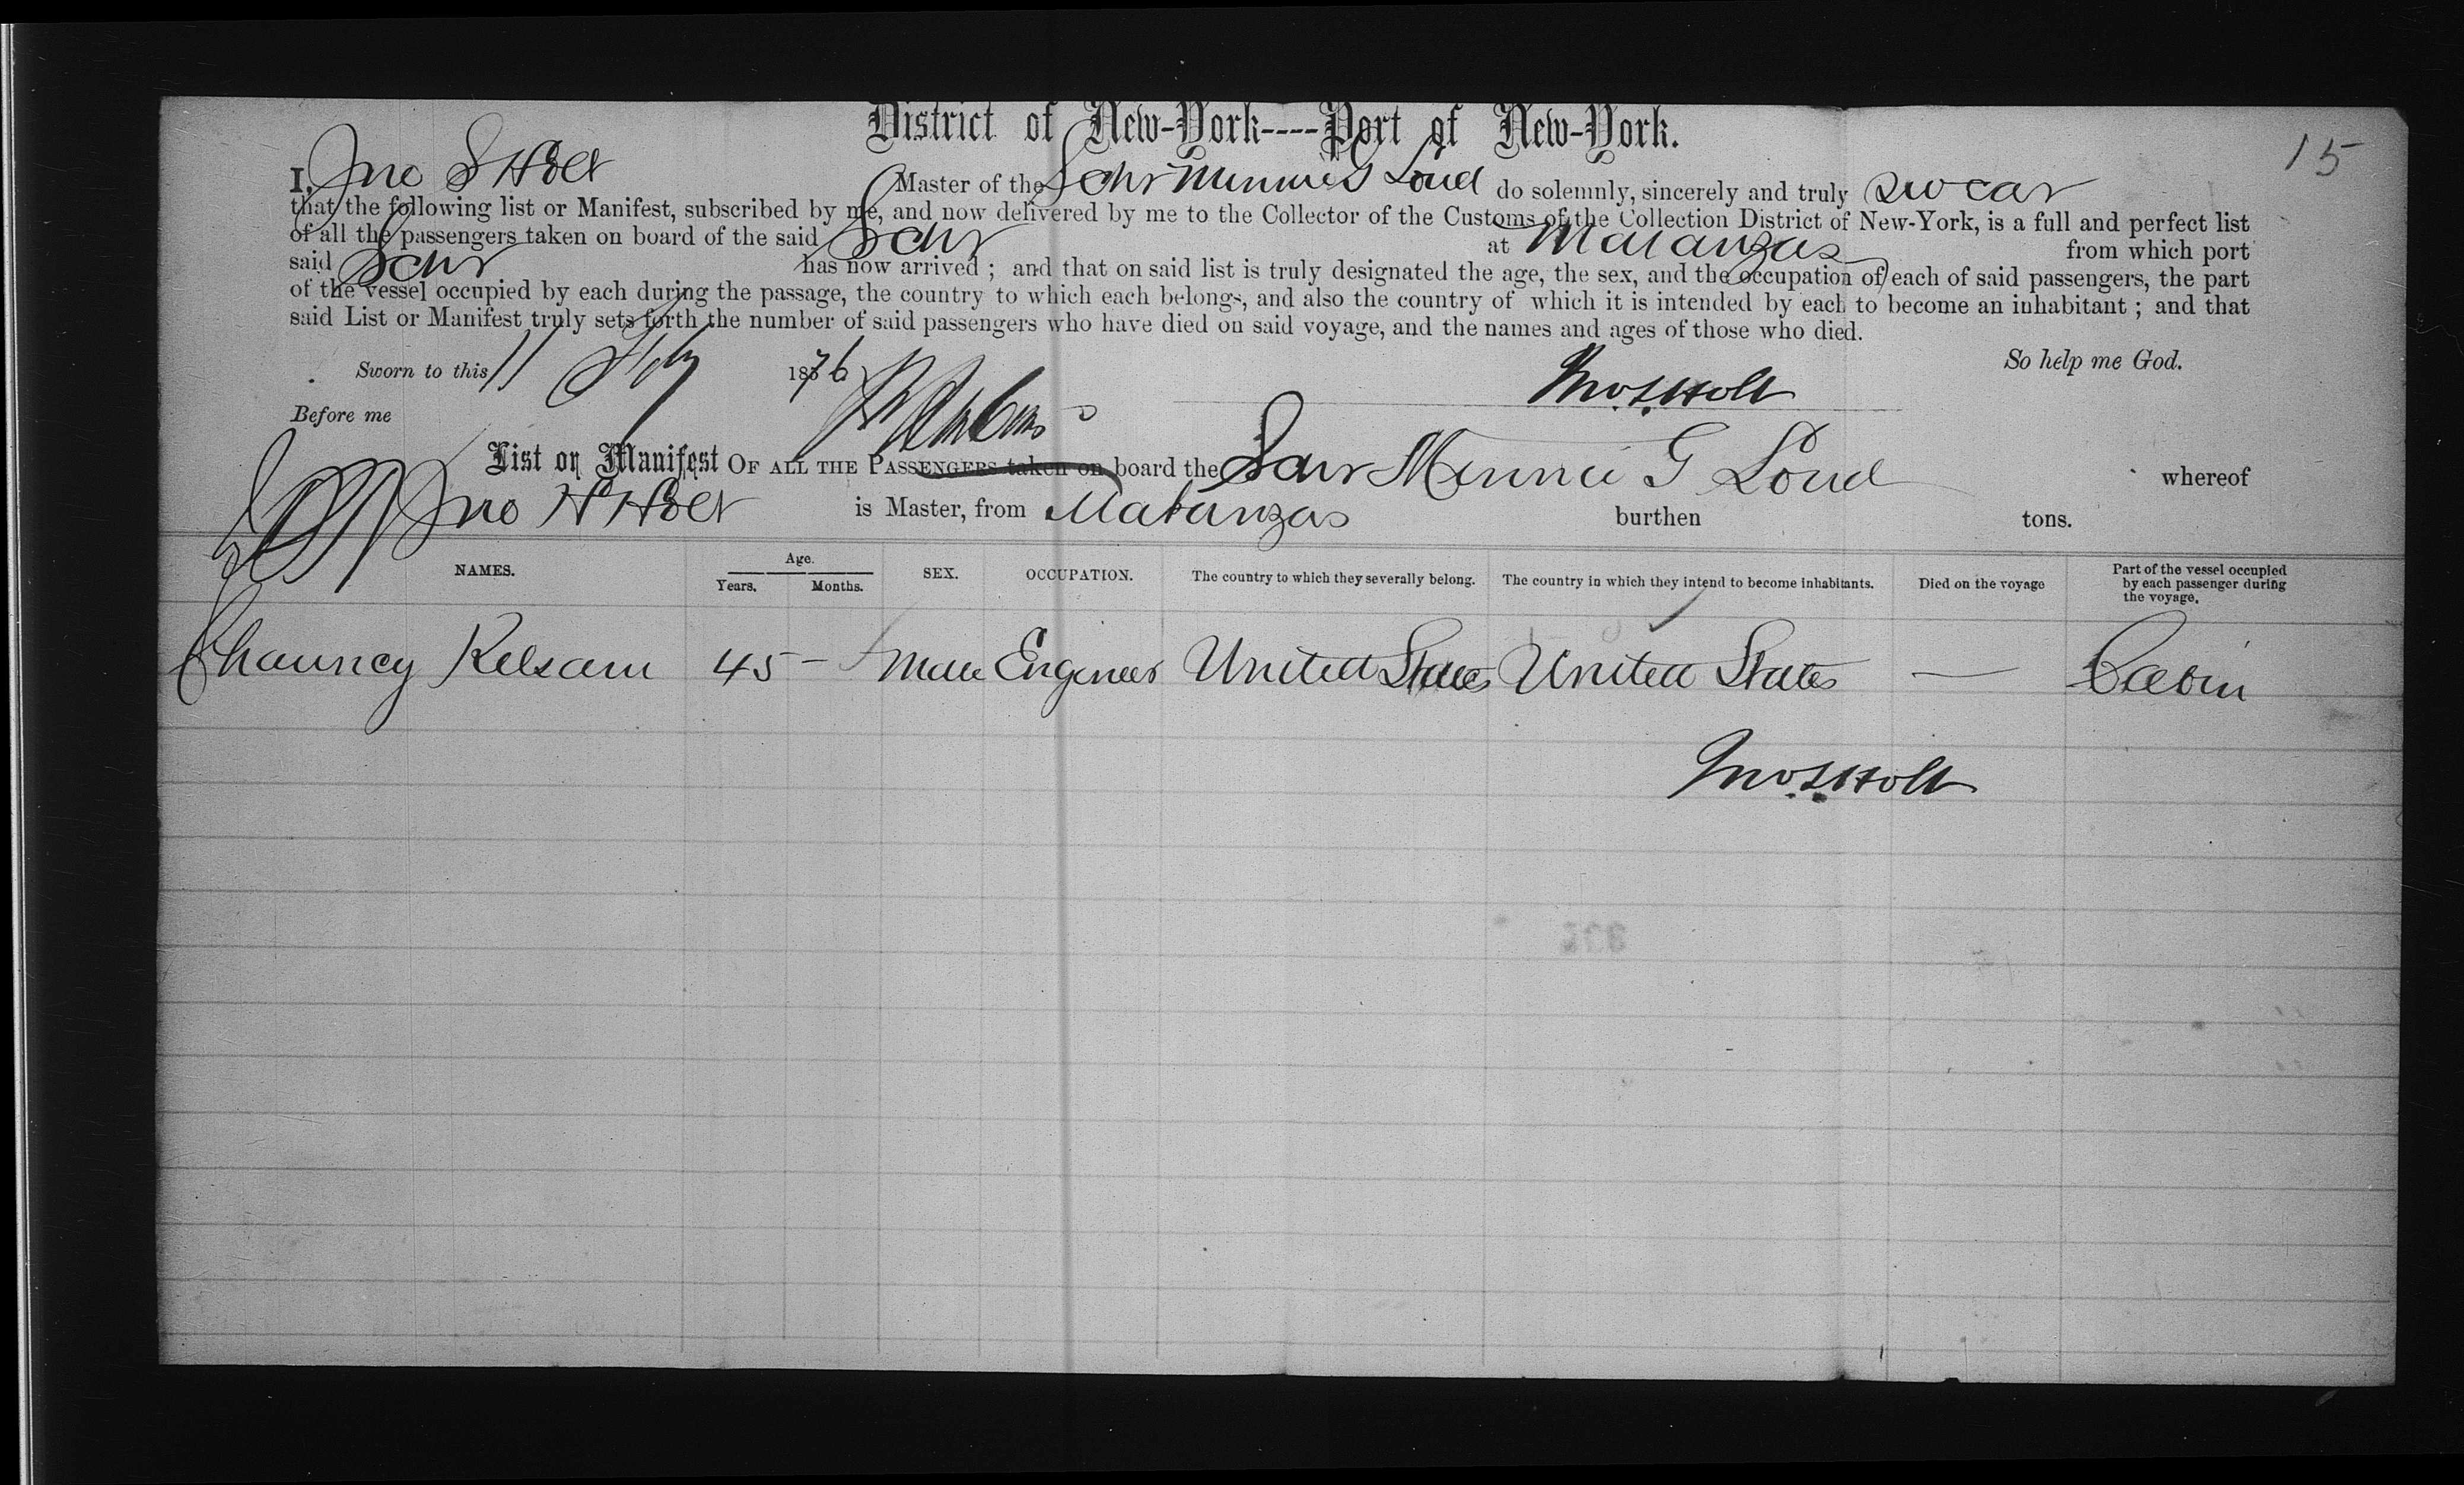 District of New-York----Port of New-York.
15
I, Jno S Holt Master of the Schr Minnie G Loud do solemnly, sincerely and truly swear
that the following list or Manifest, subscribed by me, and now delivered by me to the Collector of the Customs of the Collection District of New-York, is a full and perfect list
of all the passengers taken on board of the said Schr at Matanzas from which port
said Schr has now arrived ; and that on said list is truly designated the age, the sex, and the occupation of each of said passengers, the part
of the vessel occupied by each during the passage, the country to which each belongs, and also the country of which it is intended by each to become an inhabitant ; and that
said List or Manifest truly sets forth the number of said passengers who have died on said voyage, and the names and ages of those who died.
Sworn to this 11 July 1876 So help me God.
Jno. S. Holt
Before me
List or Manifest OF ALL THE PASSENGERS taken on board the Schr Minnie G Loud whereof
Jno H Holt is Master, from Matanzas burthen tons.
NAMES. Age. Years. Months. SEX. OCCUPATION. The country to which they severally belong. The country in which they intend to become inhabitants. Died on the voyage Part of the vessel occupied by each passenger during the voyage.
Chauncy Kelsam 45 - Male Engineer United States United States — Cabin
Jno. S. Holt